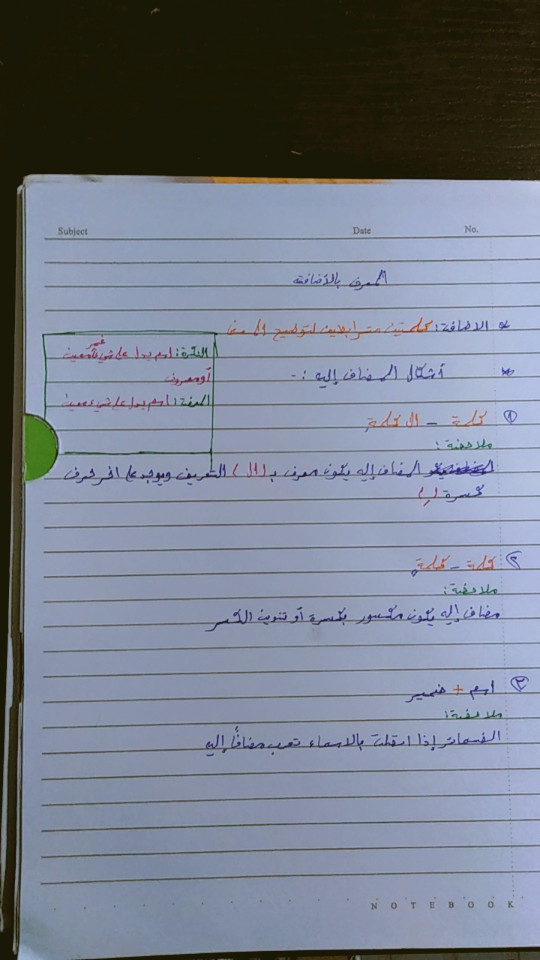 Subject Date No.
المعرف بالاضافة
* الاضافة: كلمتين مترابطين لتوضيح المعنا
النكرة: اسم يدل على شيء غير معين
أو معروف
المعرفة: اسم يدل على شيء معين
* أشكال المضاف إليه :-
① كلمة - الكلمة
ملاحظة :
المضاف إليه يكون معرف بـ (ال) التعريف ويوجد على اخر حرف
كسرة (ـِ)
② كلمة - كلمة
ملاحظة :
مضاف إليه يكون مكسور بكسرة أو تنوين الكسر
③ اسم + ضمير
ملاحظة :
الضمائر إذا اتصلت بالاسماء تعرب مضافاً إليه
NOTEBOOK